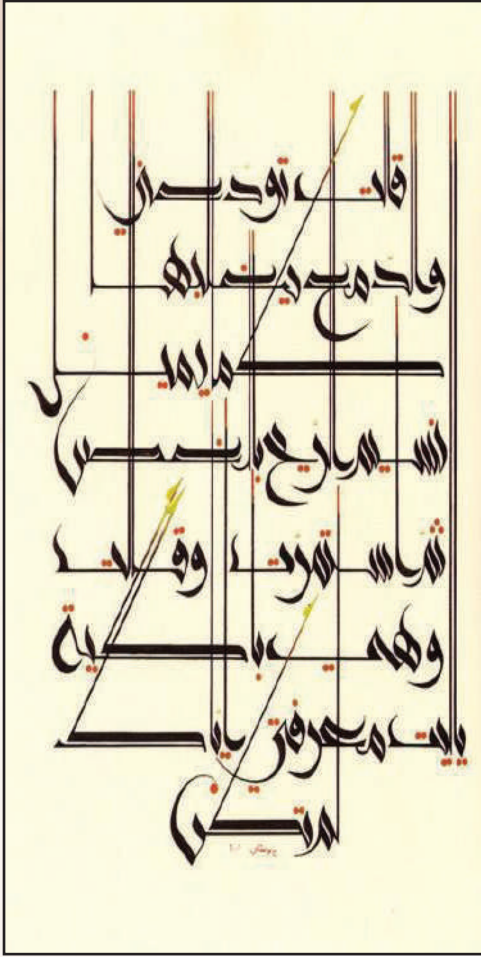 قامت تودعني
والدمع يغلبها
كما يميل
نسيم الريح بالغصن
ثم استمرت وقالت
وهي باكية
يا ليت معرفتي إياك
لم تكن